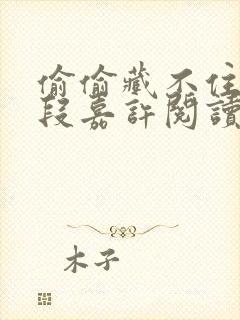 偷偷藏不住
段嘉許閱讀
木子